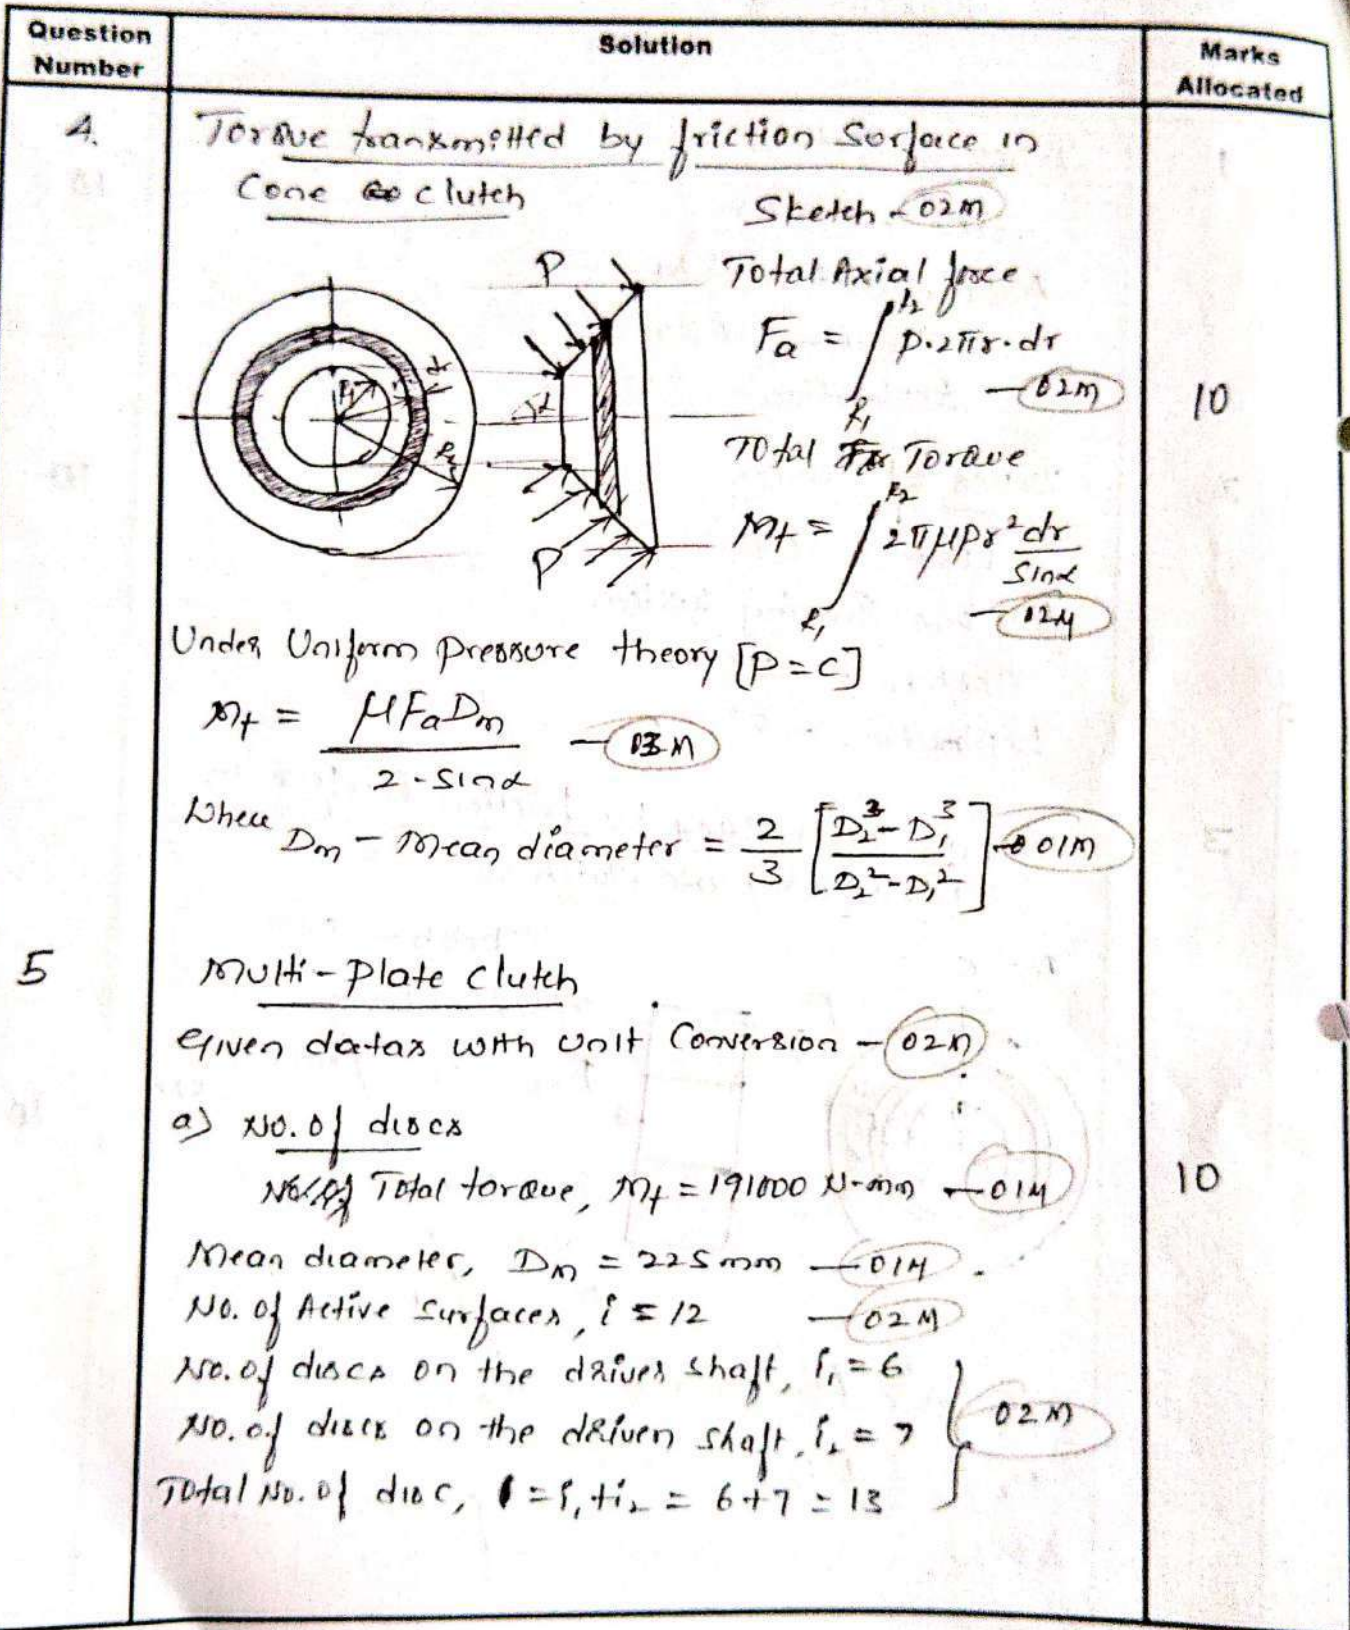 Question Number
Solution
Marks Allocated
4.
Torque transmitted by friction Surface in
Cone clutch
Sketch - 02M
P
Total Axial force
Fa = ∫ P.2πr.dr
R2
R1
- 02M
10
R1
r
R2
α
P
Total Torque
Mt = ∫ 2πμpr² dr / Sinα
R2
R1
- 02M
Under Uniform pressure theory [P=C]
Mt = μFaDm / 2.Sinα - 03M
Where
Dm - Mean diameter = 2/3 [D2³-D1³ / D2²-D1²] - 01M
5
Multi-Plate Clutch
Given datas with Unit Conversion - 02M
a) No. of discs
Total torque, Mt = 191000 N-mm - 01M
10
Mean diameter, Dm = 225mm - 01M
No. of Active Surfaces, i = 12 - 02M
No. of discs on the driver shaft, i1 = 6
No. of discs on the driven shaft, i2 = 7
02M
Total No. of disc, i = i1 + i2 = 6+7 = 13